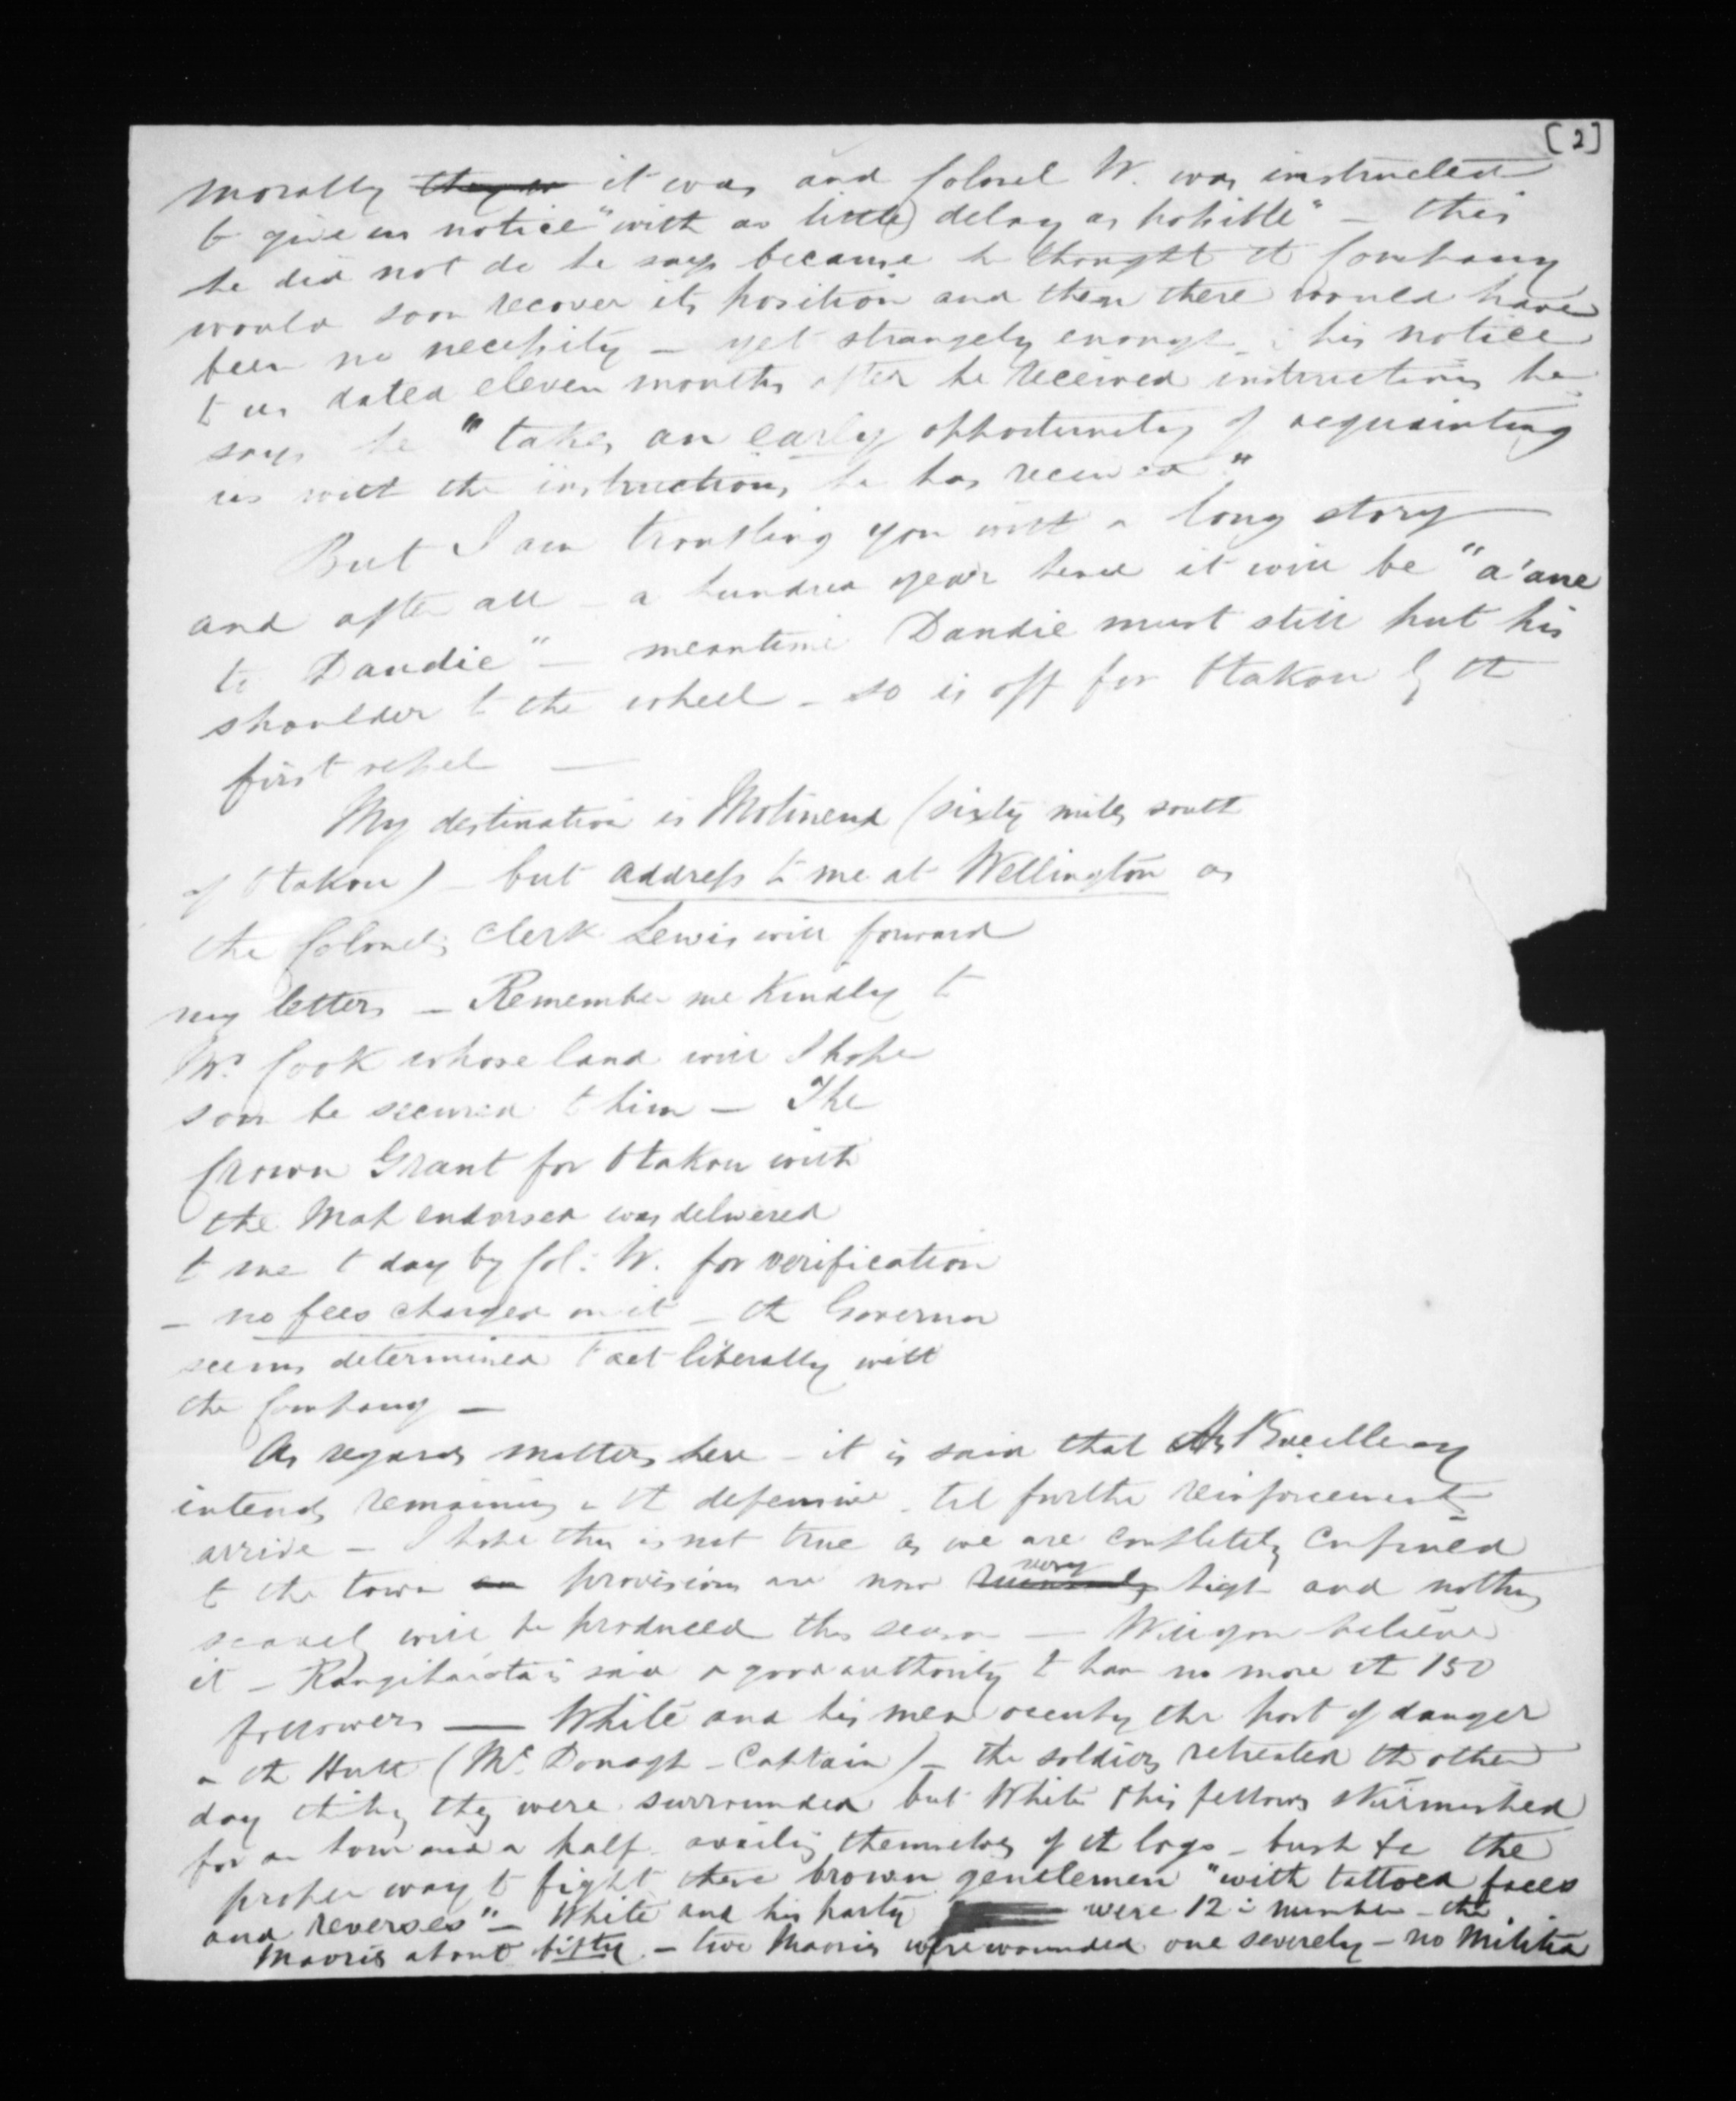 [2]
morally it was and Colonel W. was instructed
to give us notice "with as little delay as possible" — this
he did not do he says because he thought the Company
would soon recover its position and then there would have
been no necessity — yet strangely enough in his notice
to us dated eleven months after he received instructions he
says he "takes an early opportunity of acquainting
us with the instructions he has received."
But I am troubling you with a long story
and after all — a hundred years hence it will be "a' ane
to Dandie" — meantime Dandie must still put his
shoulder to the wheel — so is off for Otakou by the
first vessel —
My destination is Molineux (sixty miles south
of Otakou) — but address to me at Wellington as
the Colonel's Clerk Lewis will forward
my letters — Remember me kindly to
Mr Cook whose land will I hope
soon be secured to him — The
Crown Grant for Otakou with
the Map endorsed was delivered
to me to day by Col: W. for verification
— no fees charged on it — the Governor
seems determined to act liberally with
the Company —
As regards matters here — it is said that His Excellency
intends remaining on the defensive till further reinforcements
arrive — I hope this is not true as we are completely confined
to the town provisions are now very high and nothing
scarcely will be produced this season — Will you believe
it — Rangihaeata is said on good authority to have no more than 150
followers — White and his men occupy the post of danger
on the Hutt (McDonogh — Captain) — the soldiers retreated the other
day thinking they were surrounded but White & his fellows skirmished
for an hour and a half availing themselves of the logs — bush &c the
proper way to fight these brown gentlemen "with tattoed faces
and reverses" — White and his party were 12 in number — the
Maoris about fifty — two Maoris were wounded one severely — no Militia